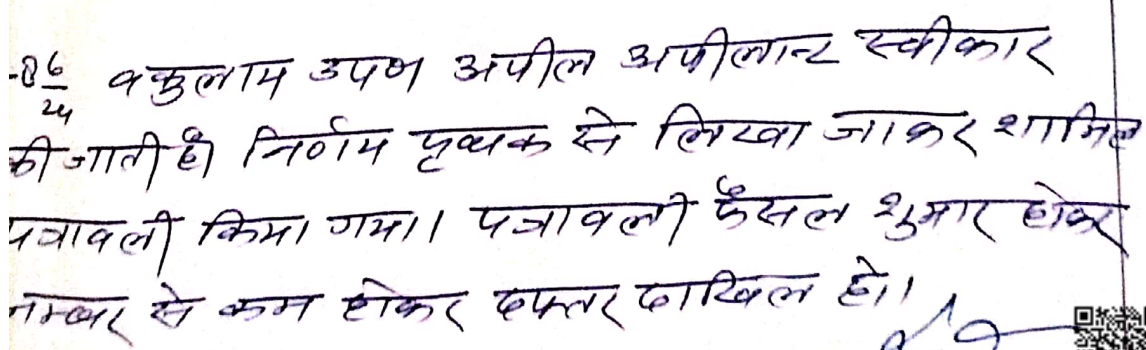 -06/24 वकुलाय उपण अपील अपीलान्ट स्वीकार
की जाती है। निर्णय पृथक से लिखा जाकर शामिल
पत्रावली किया गया। पत्रावली फैसल शुमार होकर
नम्बर से कम होकर दफ्तर दाखिल हो।